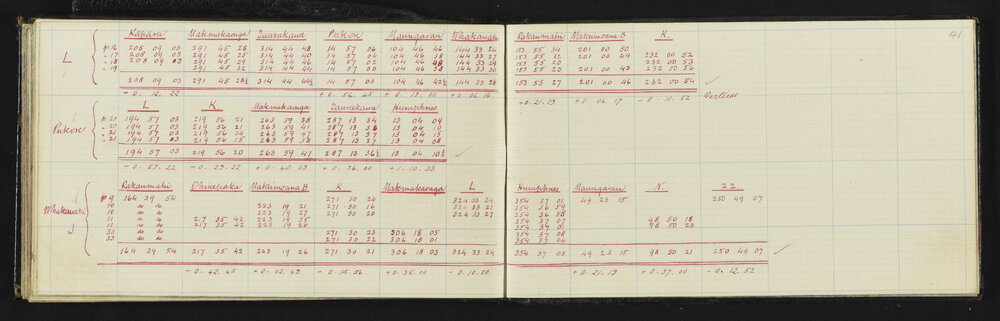 41
Kahara Makemakaonga Taurakawa Pukore Maungarau Whakauaki Rakaumatii Makumoana B K.
L
p. 16 208 09 03 291 45 28 314 44 48 14 57 06 104 46 46 144 33 26 153 55 34 201 00 50
" 17 208 09 03 291 45 25 314 44 40 14 57 04 104 46 38 144 33 27 153 55 32 201 00 44 232 00 52
" 18 208 09 03 291 45 29 314 44 46 14 57 02 104 46 48 144 33 29 153 55 20 232 00 53
" 19 291 45 32 314 44 44 14 57 00 104 46 38 144 33 30 153 55 23 201 00 43 232 00 56
208 09 03 291 45 28½ 314 44 44½ 14 57 03 104 46 42½ 144 33 28 153 55 27 201 00 46 232 00 54
- 0. 12. 22 + 0. 54. 45 + 0. 13. 00 + 0. 06. 16 + 0. 21. 19 + 0. 04. 17 - 0. 11. 52
L K Makemakaonga Taurakawa Humphries
Pukore
p. 20 194 57 03 219 56 21 263 59 38 287 13 34 13 04 09
" 20 194 57 03 219 56 21 263 59 41 287 13 38 13 04 10
" 21 194 57 03 219 56 24 263 59 47 287 13 37 13 04 15
" 21 194 57 03 219 56 15 263 59 38 287 13 37 13 04 08
194 57 03 219 56 20 263 59 41 287 13 36½ 13 04 10½
- 0. 57. 22 - 0. 29. 22 + 0. 40. 03 + 0. 36. 00 + 1. 10. 33
Rakaumatii Ohineiaka Makumoana B K Makemakaonga L Humphries Maungarau N. 22.
Whakauaki
p 9 164 39 54 271 30 26 324 33 24 354 37 01 49 23 15 250 49 07
10 do do 223 19 21 271 30 16 324 33 21 354 36 59
10 do do 223 19 27 271 30 20 324 33 27 354 36 58
11 do do 217 35 42 223 19 35 354 37 07 98 50 18
11 do do 217 35 42 223 19 20 354 37 01 98 50 23
33 do do 271 30 23 306 18 05 354 37 08
33 do do 271 30 22 306 18 01 354 37 04
164 39 54 217 35 42 223 19 26 271 30 21 306 18 03 324 33 24 354 37 03 49 23 15 98 50 21 250 49 07
- 0. 42. 45 + 0. 02. 49 - 0. 15. 56 + 0. 35. 10 - 0. 10. 00 + 0. 21. 19 + 0. 37. 00 - 0. 12. 52